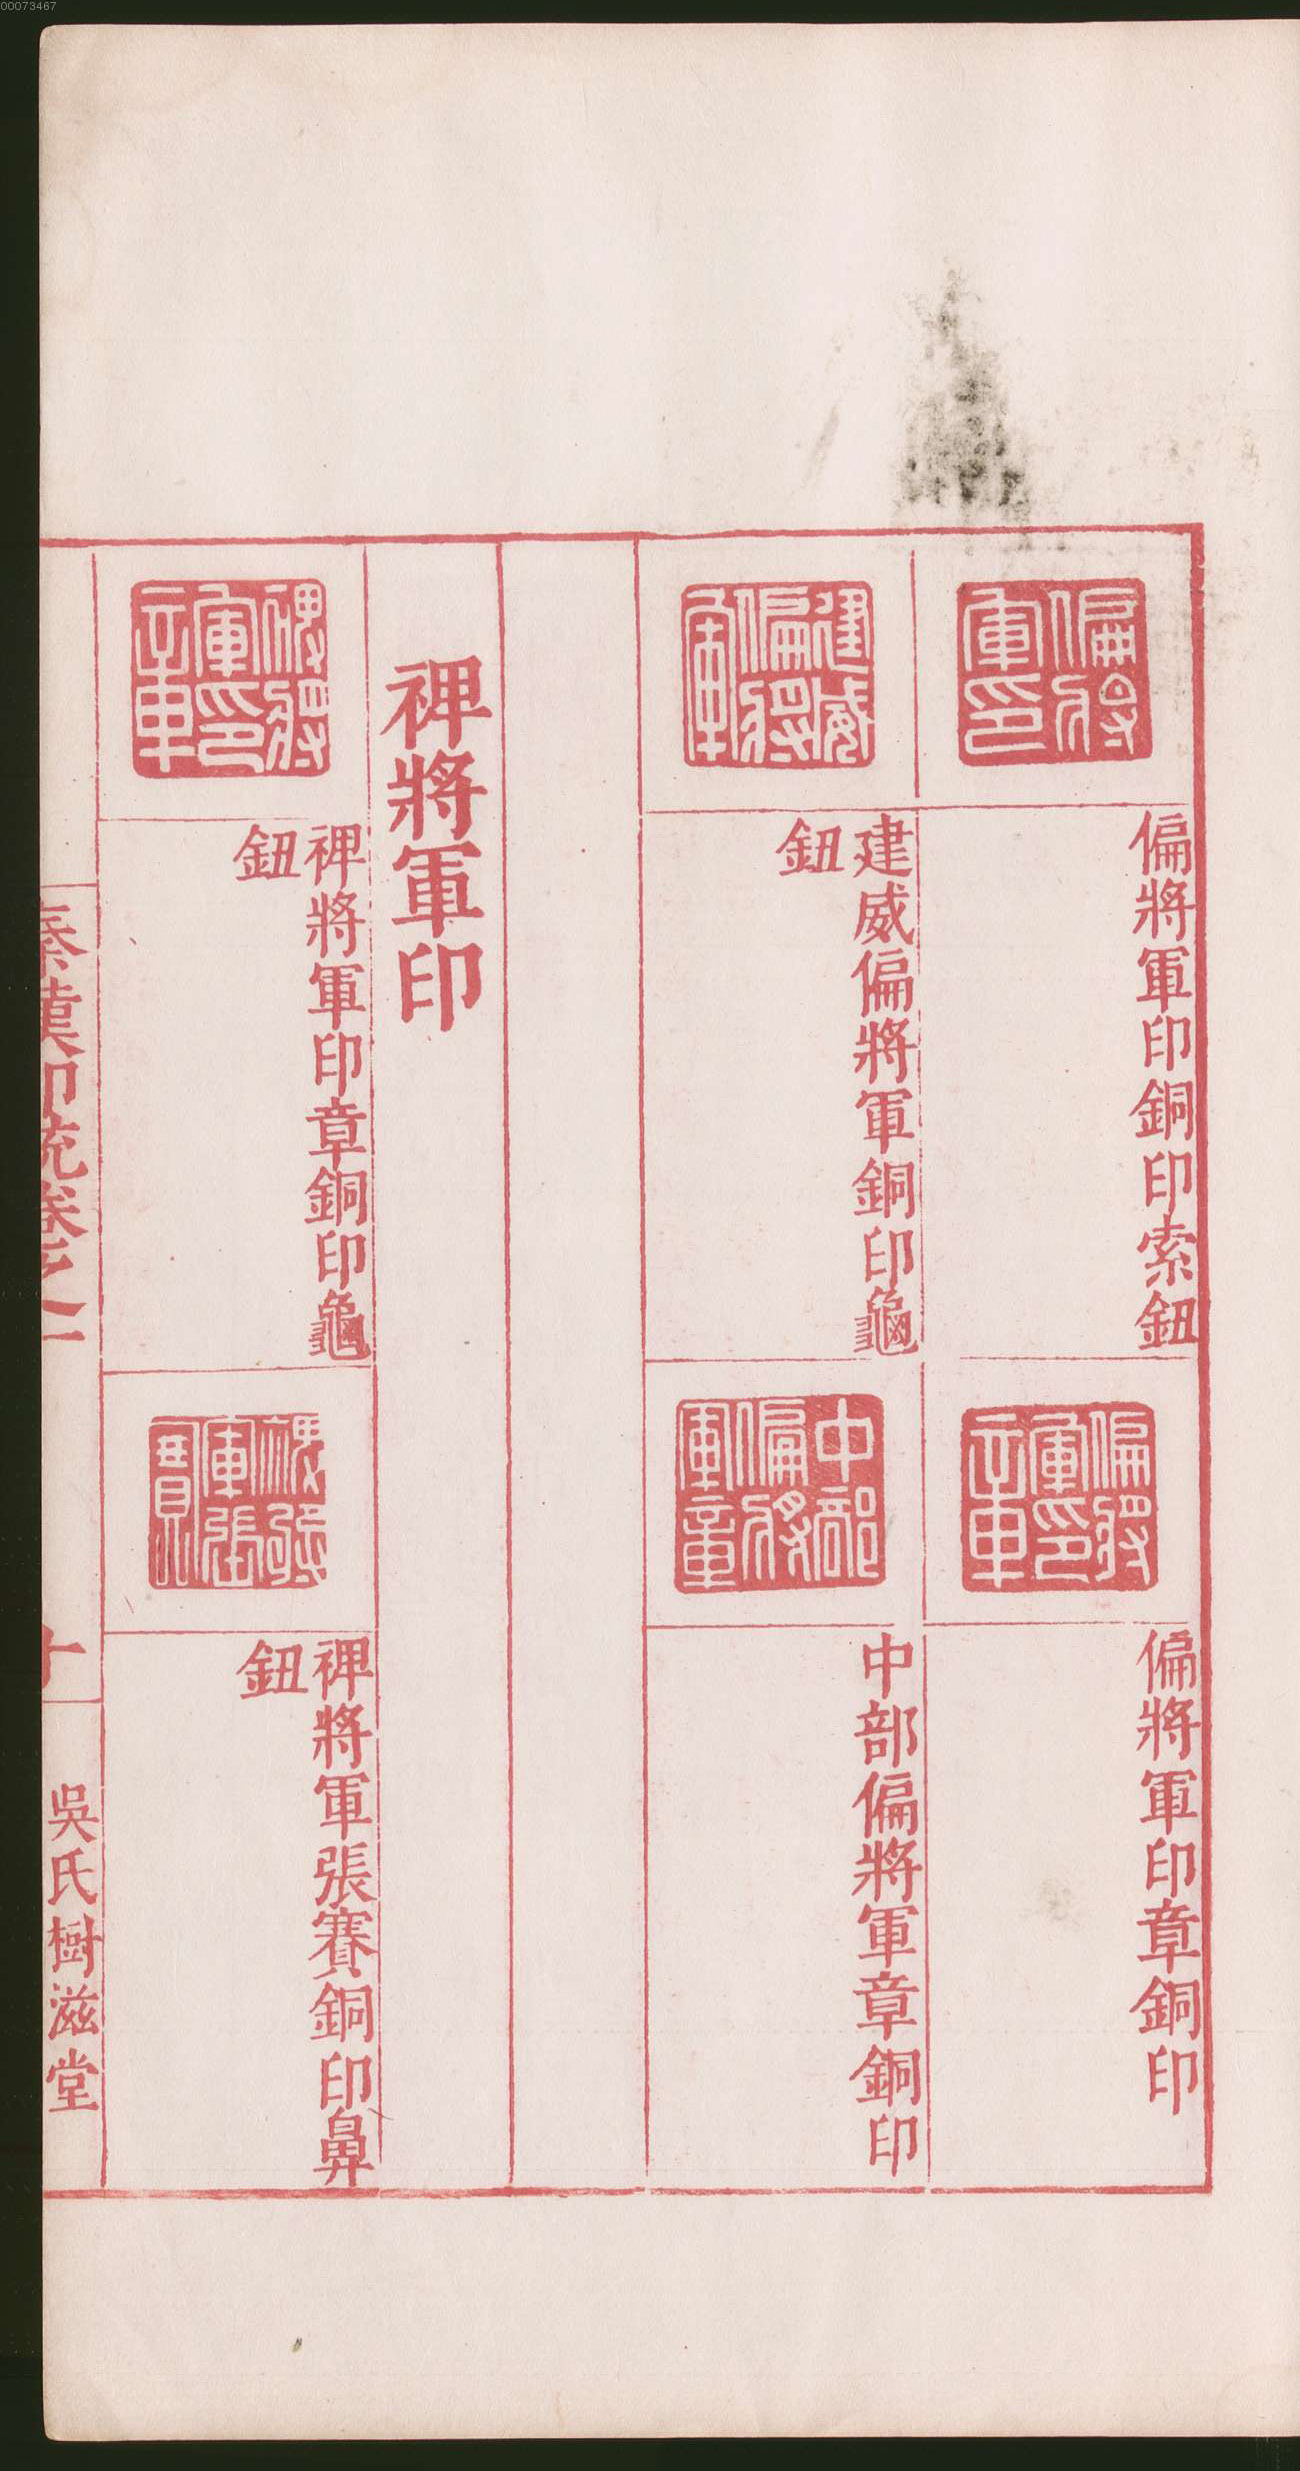 00073467
偏將軍印
偏將軍印銅印索鈕
偏將軍印章
偏將軍印章銅印
建威偏將軍
建威偏將軍銅印龜
鈕
中部偏將軍章
中部偏將軍章銅印
裨將軍印
裨將軍印章
裨將軍印章銅印龜
鈕
裨將軍張賽
裨將軍張賽銅印鼻
鈕
秦漢印統卷之一
十
吳氏樹滋堂